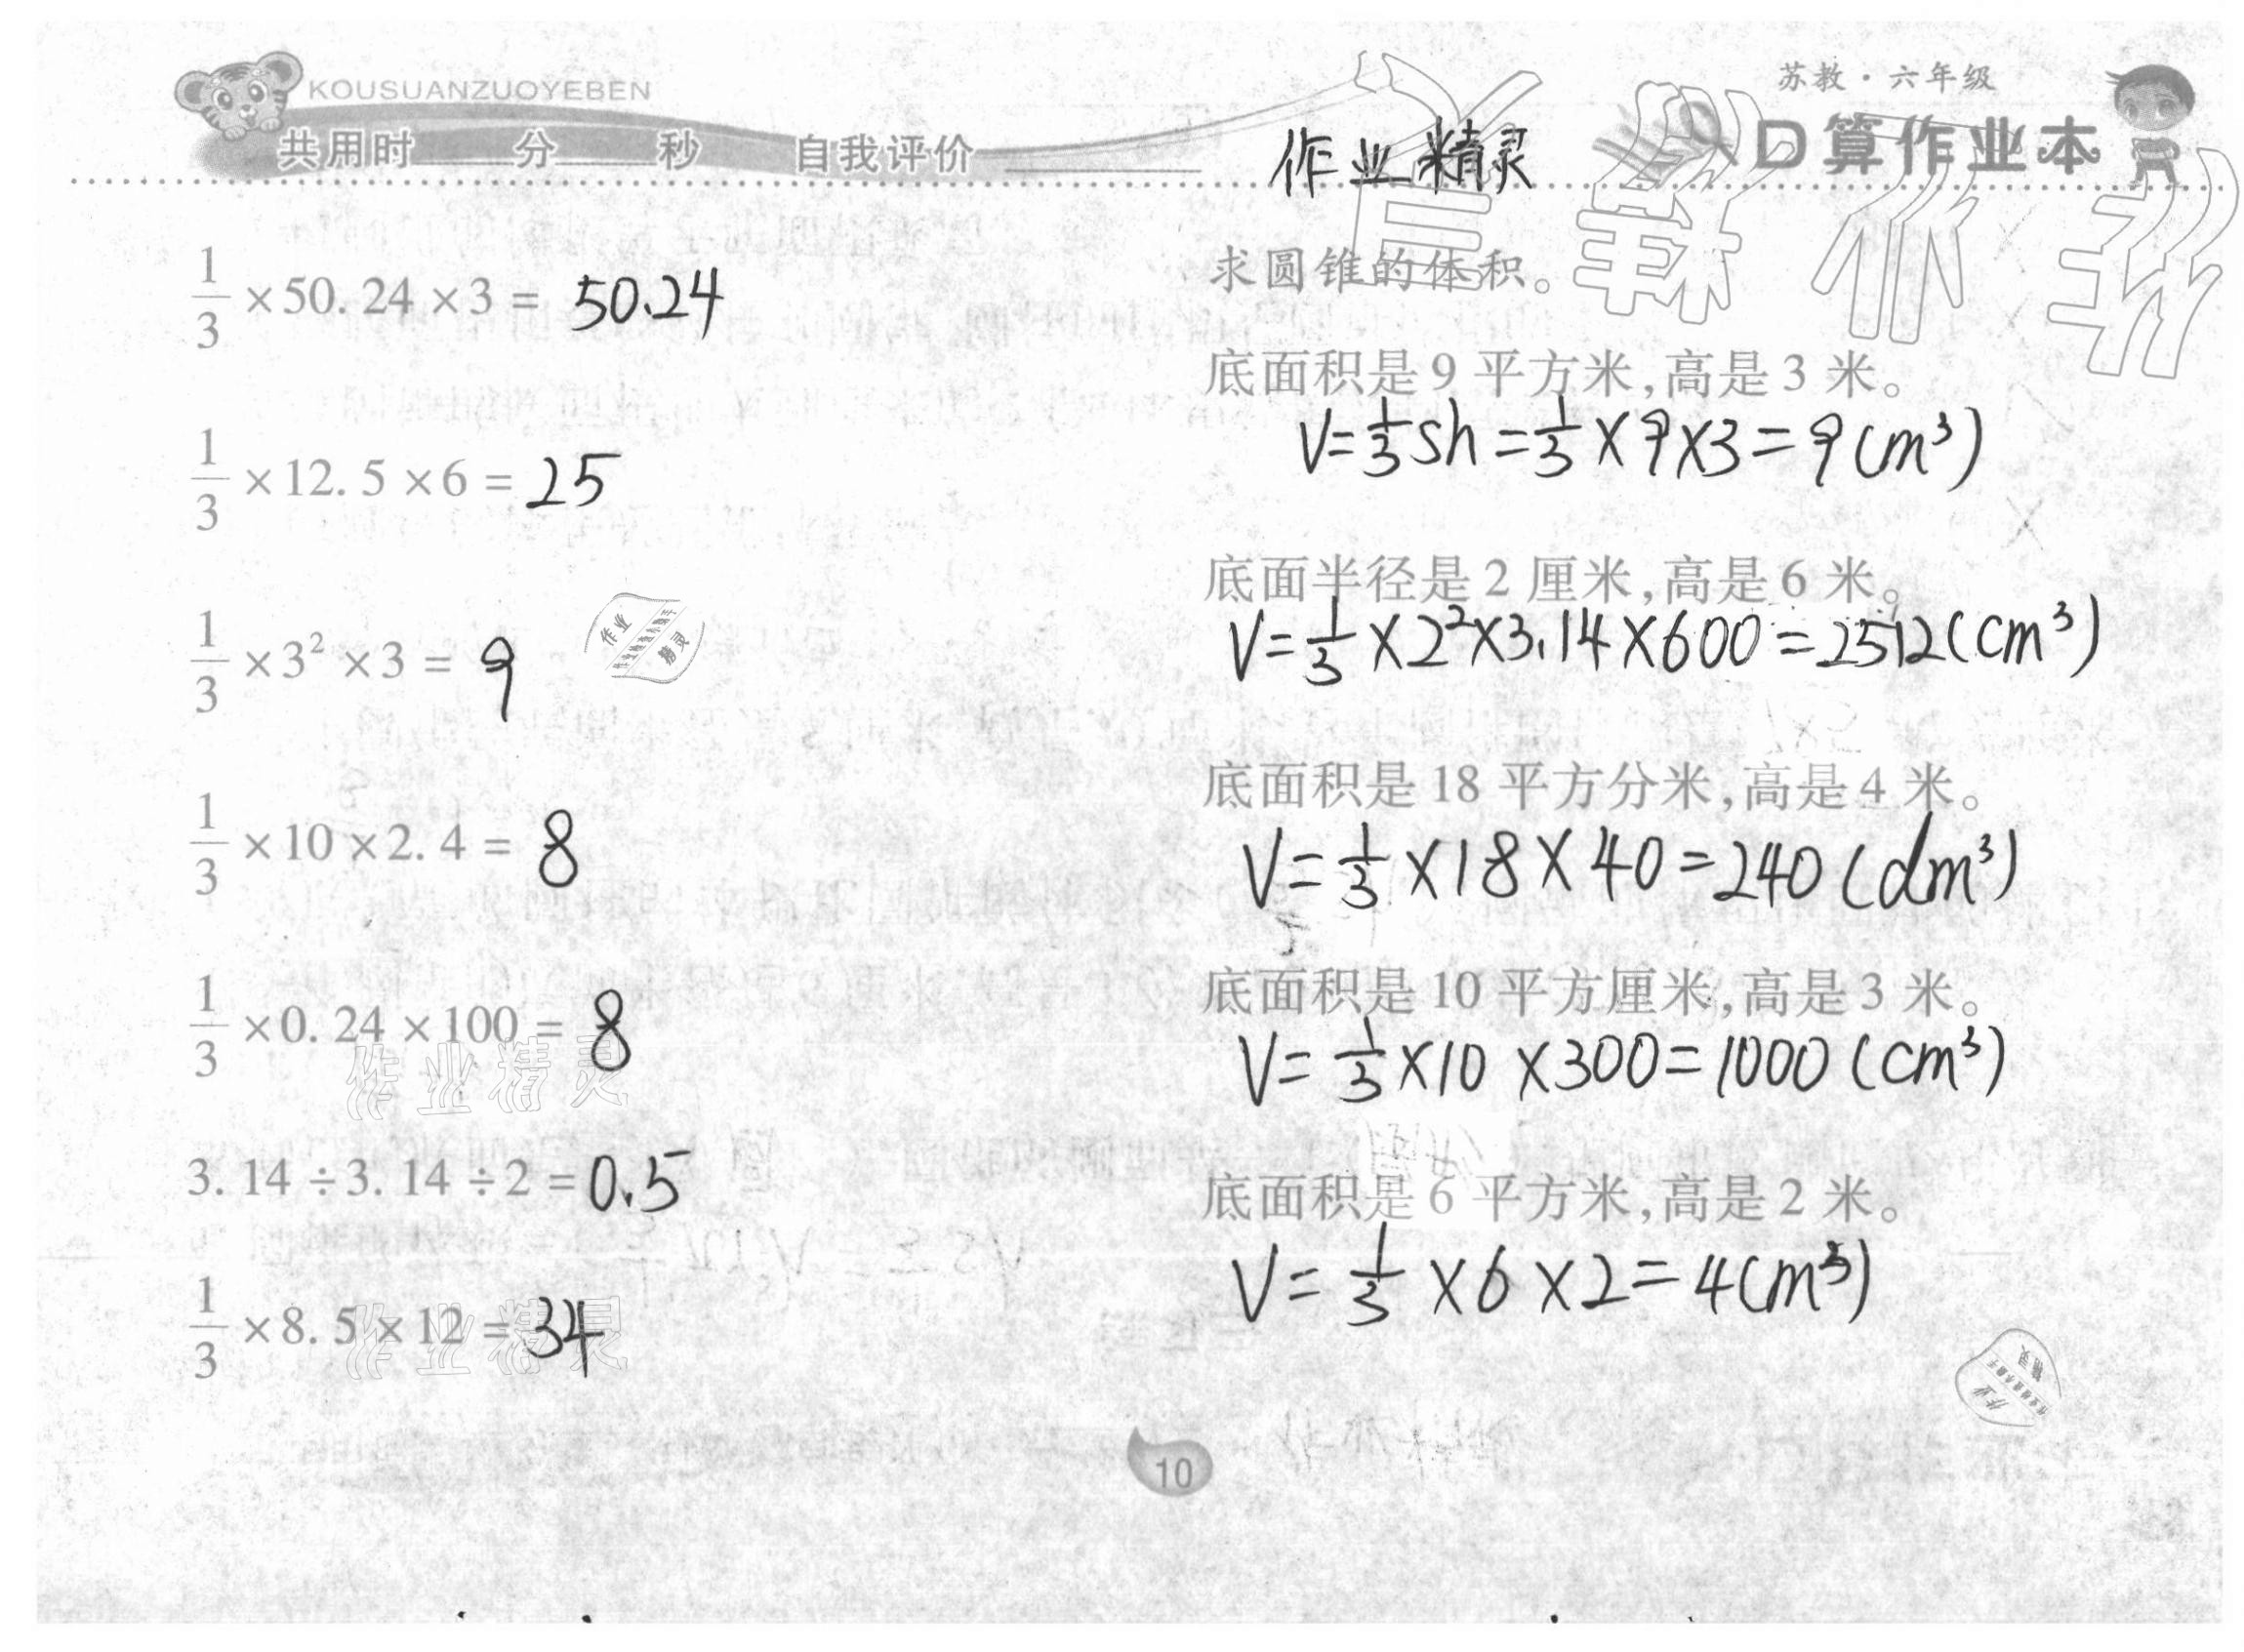 KOUSUANZUOYEBEN
共用时 分 秒 自我评价
苏教·六年级
作业精灵
口算作业本
1/3 ×50.24 ×3 = 50.24
1/3 ×12.5 ×6 = 25
1/3 ×3² ×3 = 9
1/3 ×10 ×2.4 = 8
1/3 ×0.24 ×100 = 8
作业精灵
3.14 ÷3.14 ÷2 = 0.5
1/3 ×8.5 ×12 = 34
作业精灵
求圆锥的体积。
底面积是 9 平方米,高是 3 米。
V=1/3Sh=1/3×9×3=9(m³)
底面半径是 2 厘米,高是 6 米。
V=1/3×2²×3.14×600=2512(cm³)
底面积是 18 平方分米,高是 4 米。
V=1/3×18×40=240(dm³)
底面积是 10 平方厘米,高是 3 米。
V=1/3×10×300=1000(cm³)
底面积是 6 平方米,高是 2 米。
V=1/3×6×2=4(m³)
作业
精灵
10